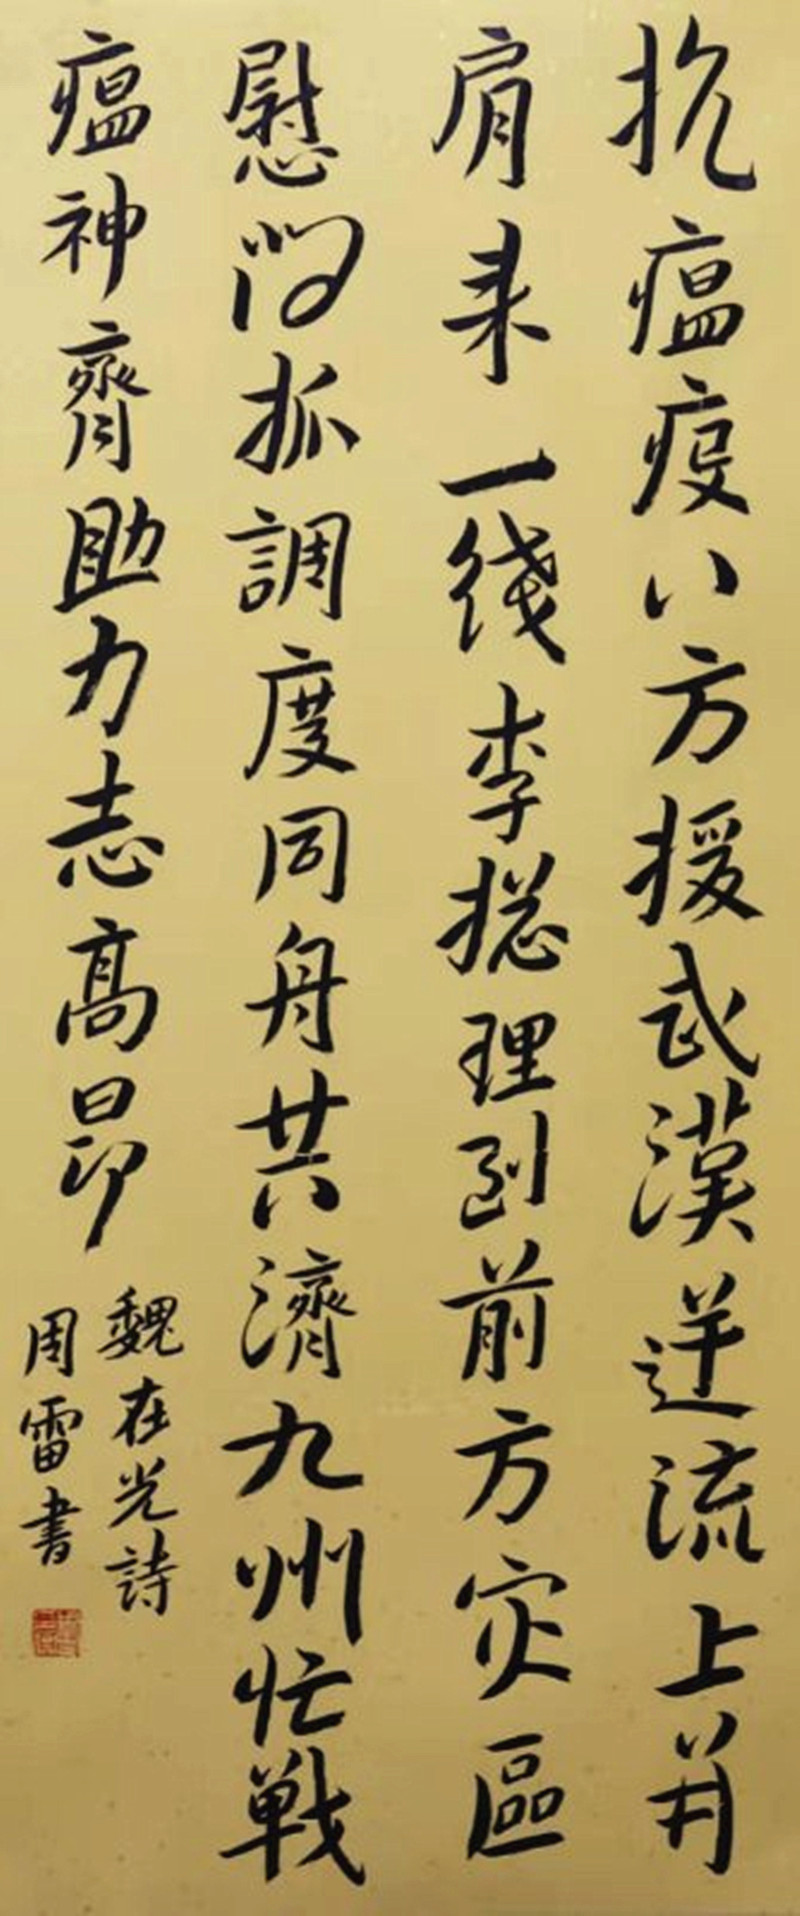 抗瘟疫八方援武漢逆流上并
肩来一线李揔理到前方灾區
慰问抓調度同舟共濟九州忙戰
瘟神齊助力志高昂
魏在光詩
周雷书